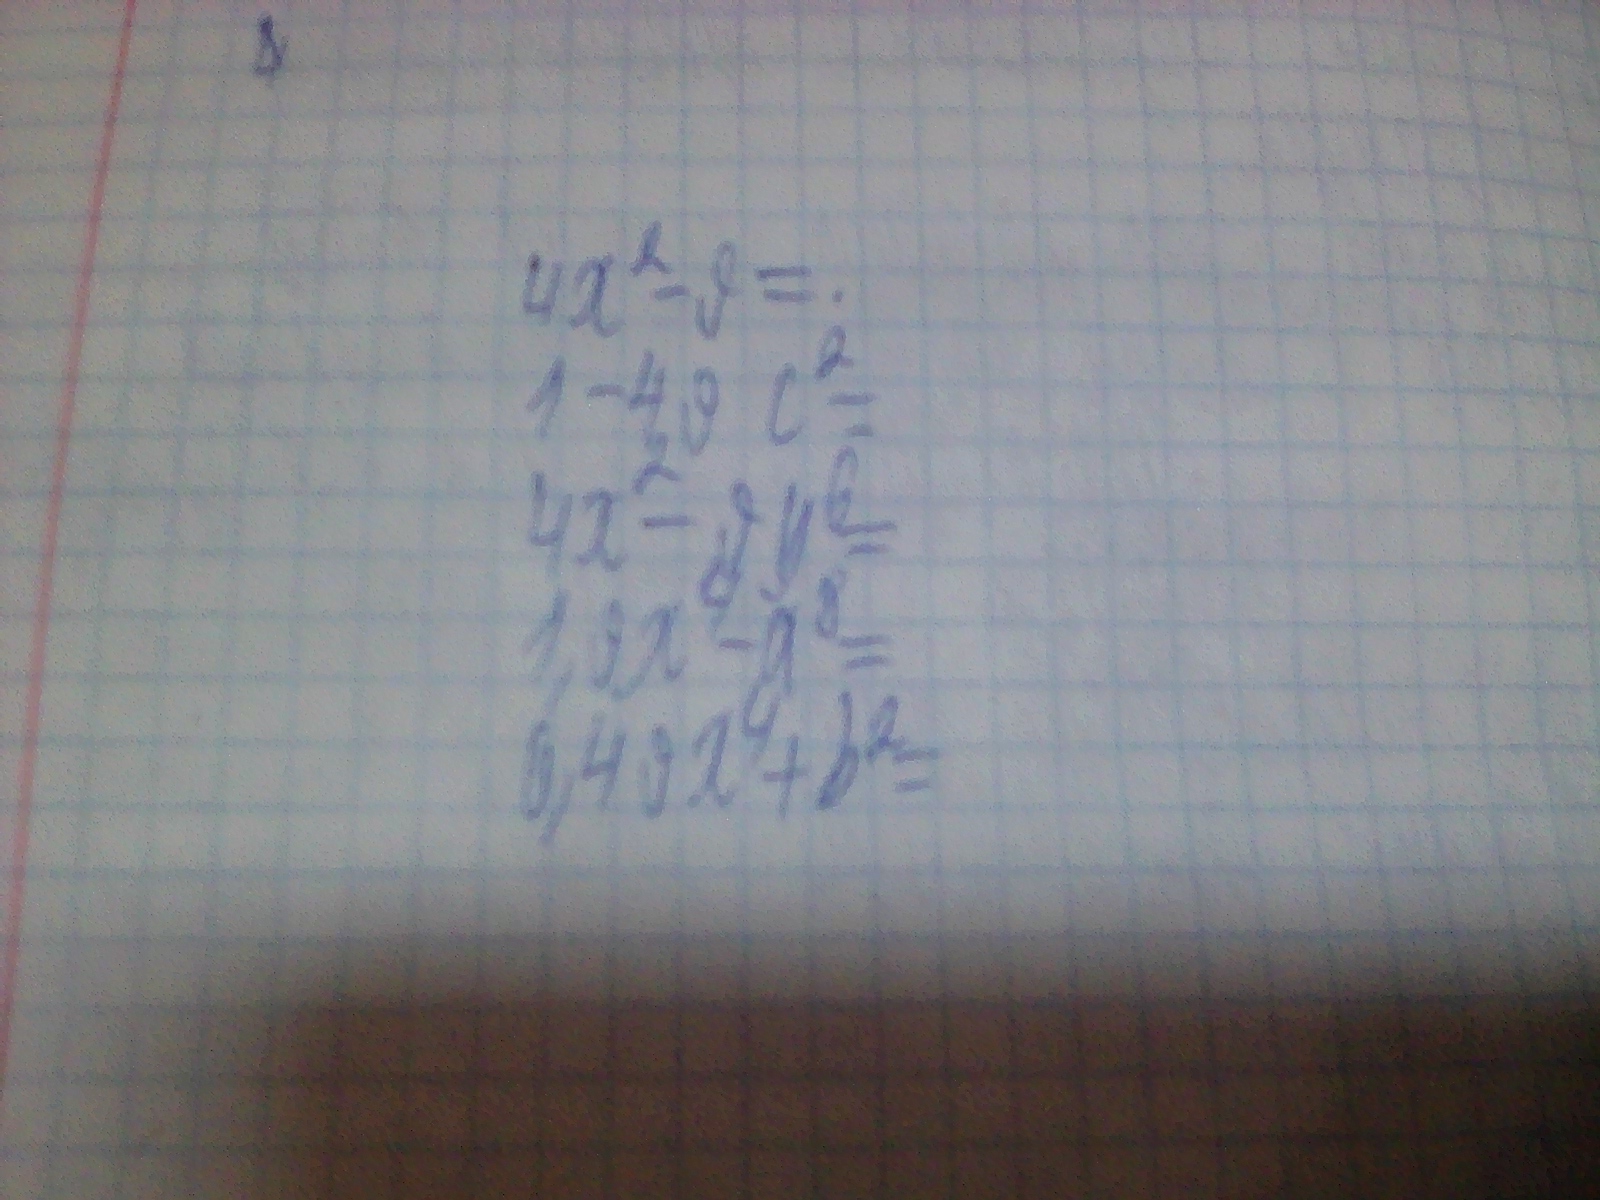 4x² - 9 =
1 - 49 c² =
4x² - 9y⁶ =
1,9x - a⁸ =
0,49x⁴ + b² =